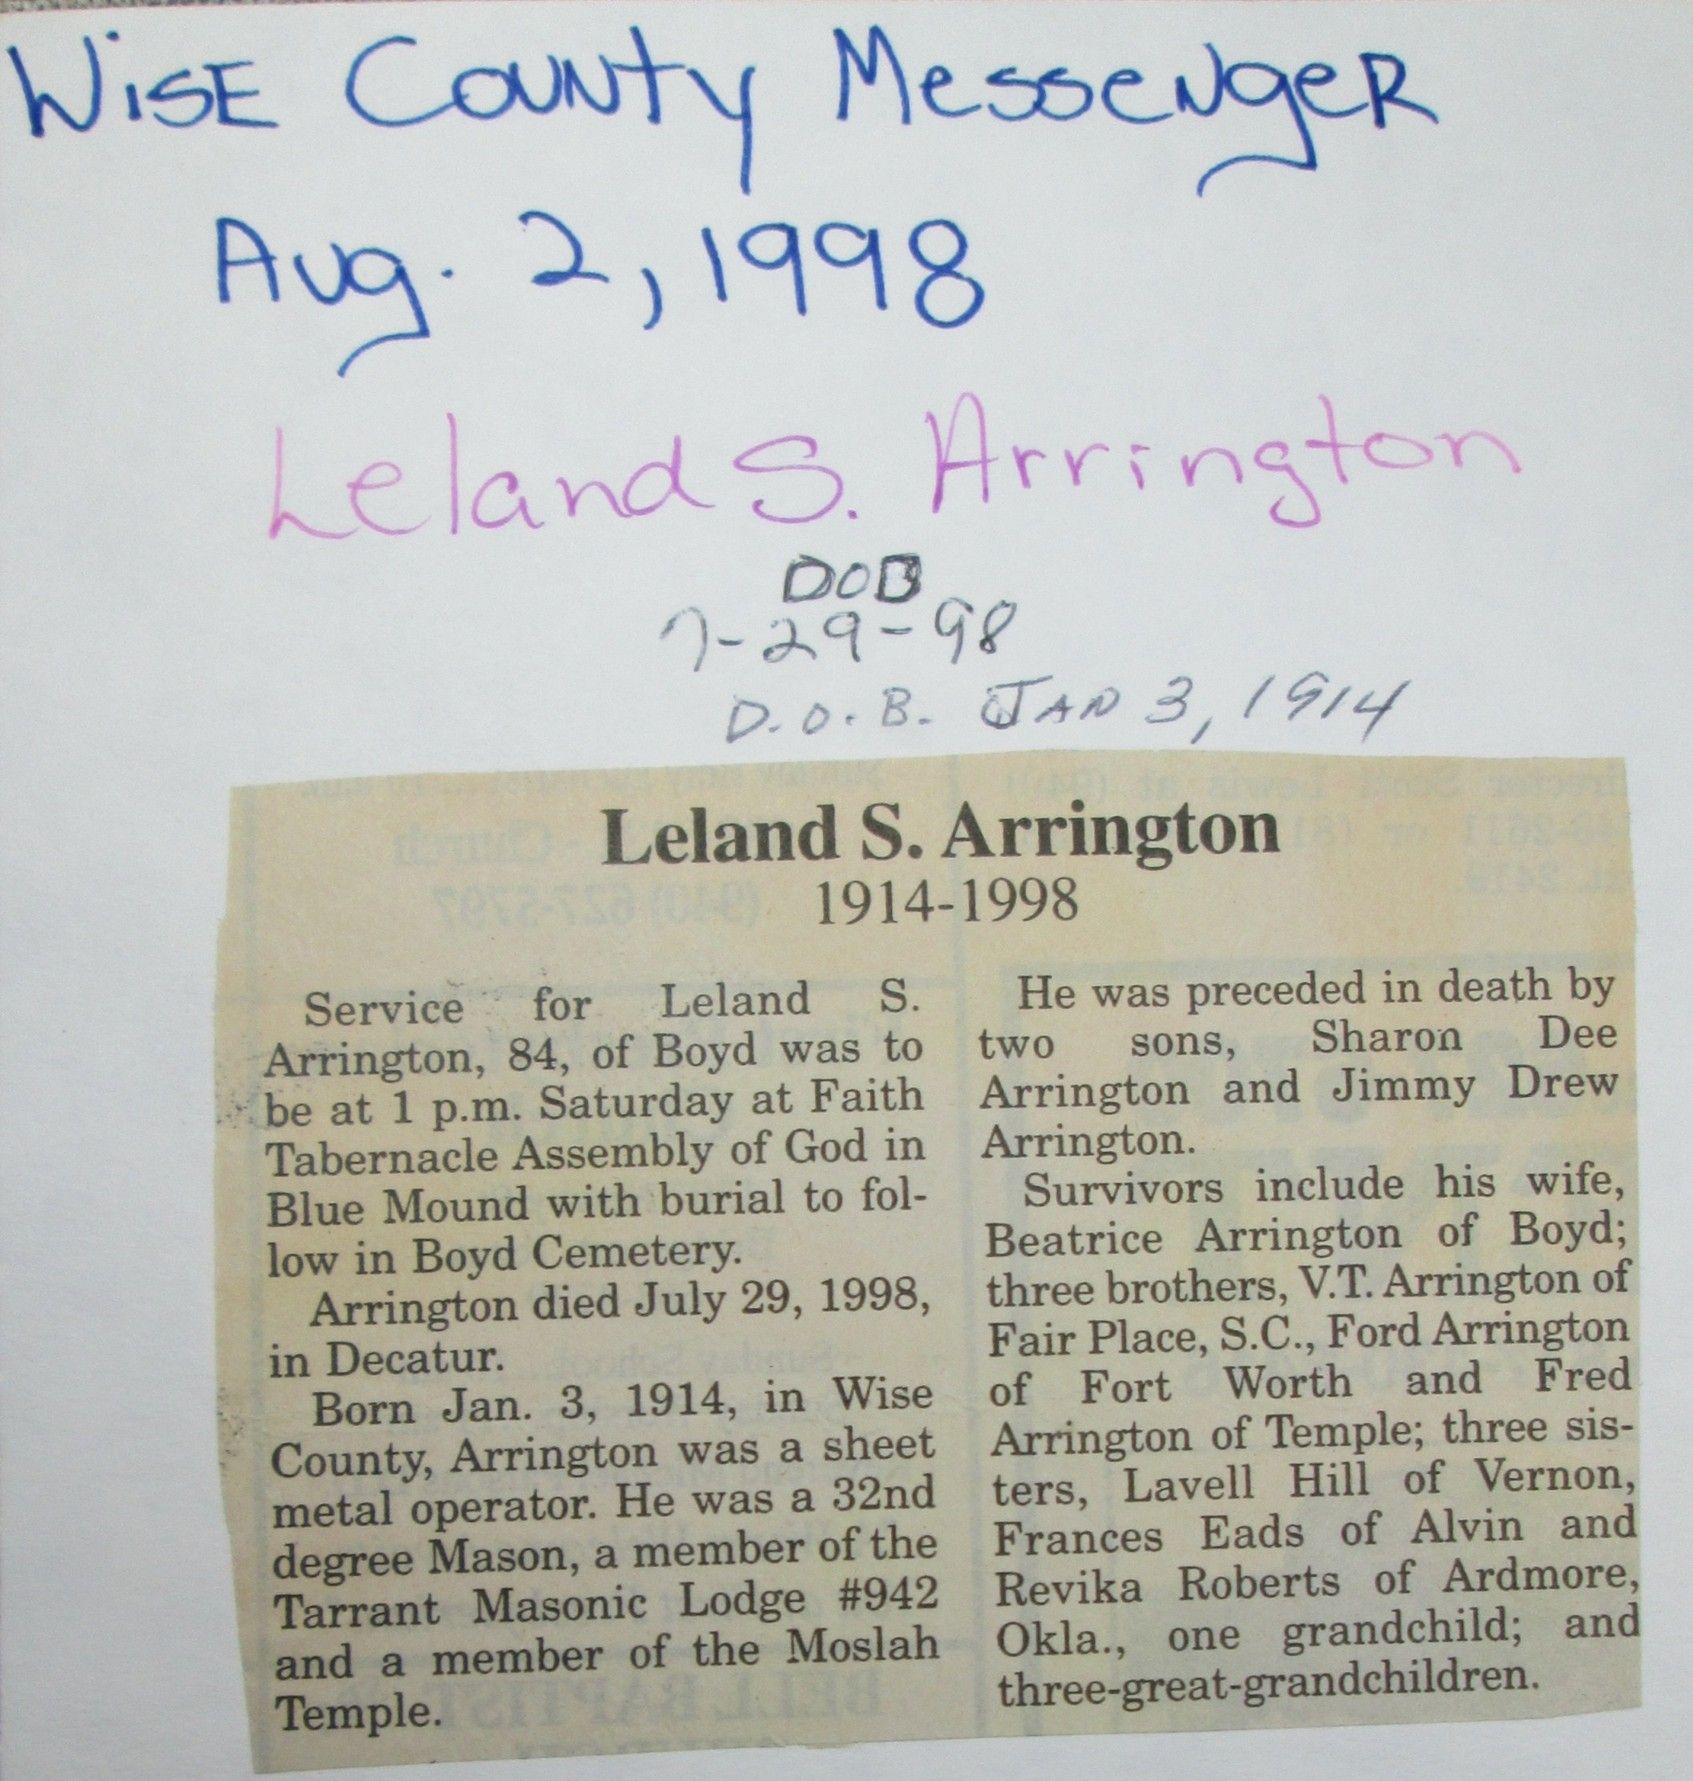 WiSE COUNTy MesseNgeR
Aug. 2, 1998
Leland S. Arrington
DOB
7-29-98
D.O.B. JAN 3, 1914
Leland S. Arrington
1914-1998
Service for Leland S.
Arrington, 84, of Boyd was to
be at 1 p.m. Saturday at Faith
Tabernacle Assembly of God in
Blue Mound with burial to fol-
low in Boyd Cemetery.
Arrington died July 29, 1998,
in Decatur.
Born Jan. 3, 1914, in Wise
County, Arrington was a sheet
metal operator. He was a 32nd
degree Mason, a member of the
Tarrant Masonic Lodge #942
and a member of the Moslah
Temple.
He was preceded in death by
two sons, Sharon Dee
Arrington and Jimmy Drew
Arrington.
Survivors include his wife,
Beatrice Arrington of Boyd;
three brothers, V.T. Arrington of
Fair Place, S.C., Ford Arrington
of Fort Worth and Fred
Arrington of Temple; three sis-
ters, Lavell Hill of Vernon,
Frances Eads of Alvin and
Revika Roberts of Ardmore,
Okla., one grandchild; and
three-great-grandchildren.